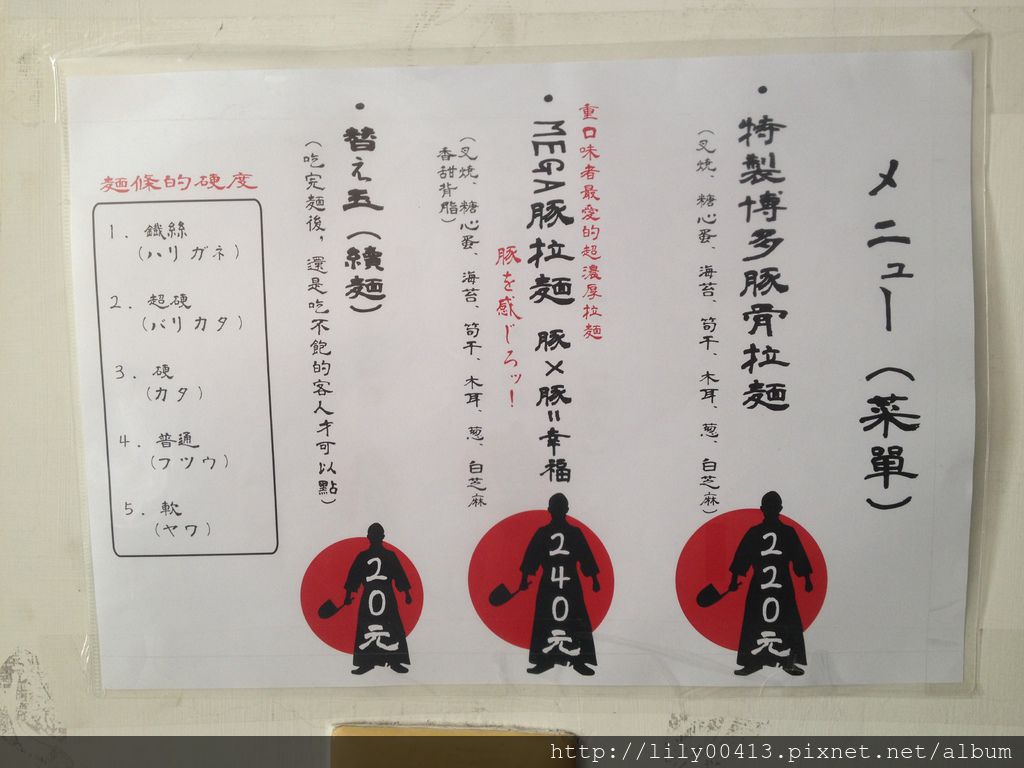 メニュー（菜單）
・特製博多豚骨拉麵
（叉燒、糖心蛋、海苔、筍干、木耳、蔥、白芝麻）
220元
重口味者最愛的超濃厚拉麵
・MEGA豚拉麵 豚×豚=幸福
豚を感じろッ！
（叉燒、糖心蛋、海苔、筍干、木耳、蔥、白芝麻
香甜背脂）
240元
・替え玉（續麵）
（吃完麵後，還是吃不飽的客人才可以點）
20元
麵條的硬度
1. 鐵絲
（ハリガネ）
2. 超硬
（バリカタ）
3. 硬
（カタ）
4. 普通
（フツウ）
5. 軟
（ヤワ）
http://lily00413.pixnet.net/album